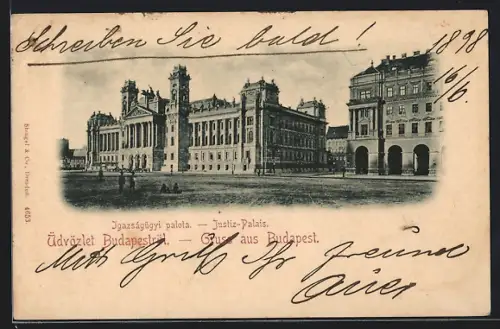 Schreiben Sie bald!
1898
16/6.
Stengel & Co., Dresden. 4053
Igazságügyi palota. — Justiz-Palais.
Üdvözlet Budapestről. — Gruss aus Budapest.
Mit Gruß Ihr Freund